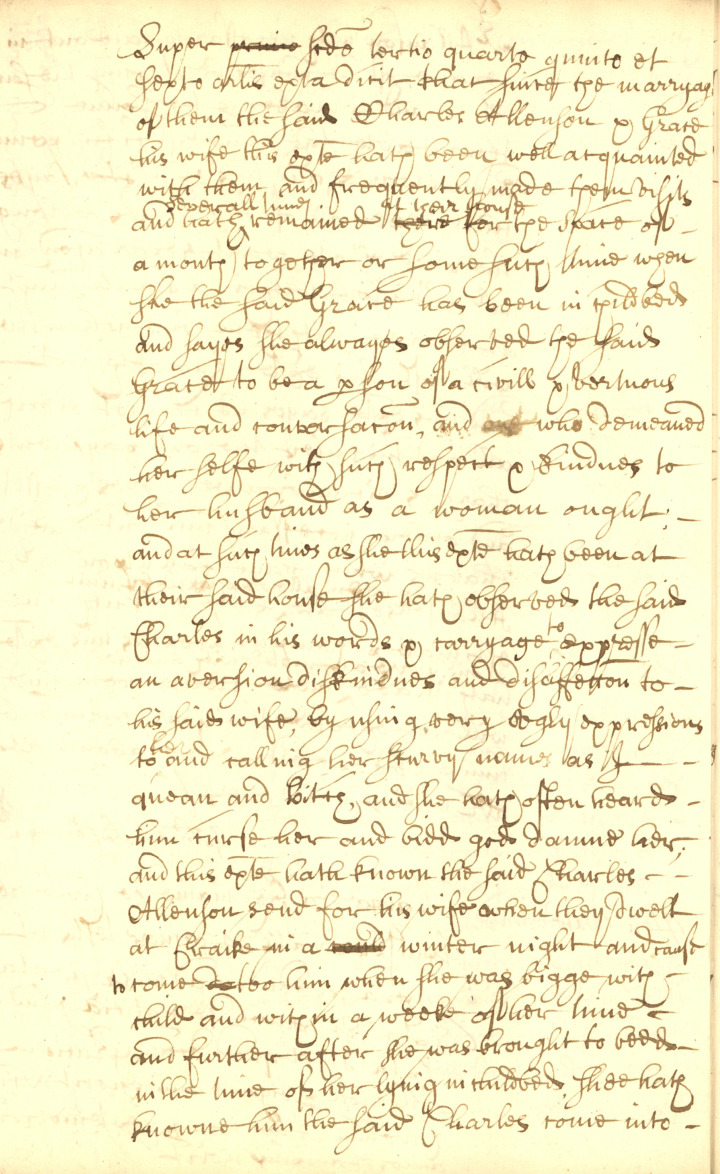 Super primo scdo tertio quarto quinto et
sexto arlis exta dicit that since the marryag
of them the said Charles Allenson & Grace
his wife this exte hath been well acquainted
with them and frequently made them visits
severall times at their house
and hath remained there for the space of
a month together or some such time when
she the said Grace has been in childbed
and sayes she alwayes observed the said
Grace to be a pson of a civill & vertuous
life and conversacon, and one who demeaned
her selfe with such respect & kindnes to
her husband as a woman ought;
and at such times as she this exte hath been at
their said house she hath observed the said
Charles in his words & carryage to expresse
an aversion diskindnes and disaffection to
his said wife, by using very ugly expressions
to her and calling her scurvy names as
quean and Bitch, and she hath often heard
him curse her and bidd god damne her,
and this exte hath known the said Charles
Allenson send for his wife when they dwelt
at Craike in a could winter night and cause
to come to him when she was bigge with
child and within a weeke of her time
and further after she was brought to bedd
in the time of her lying in childbed, shee hath
knowne him the said Charles come into